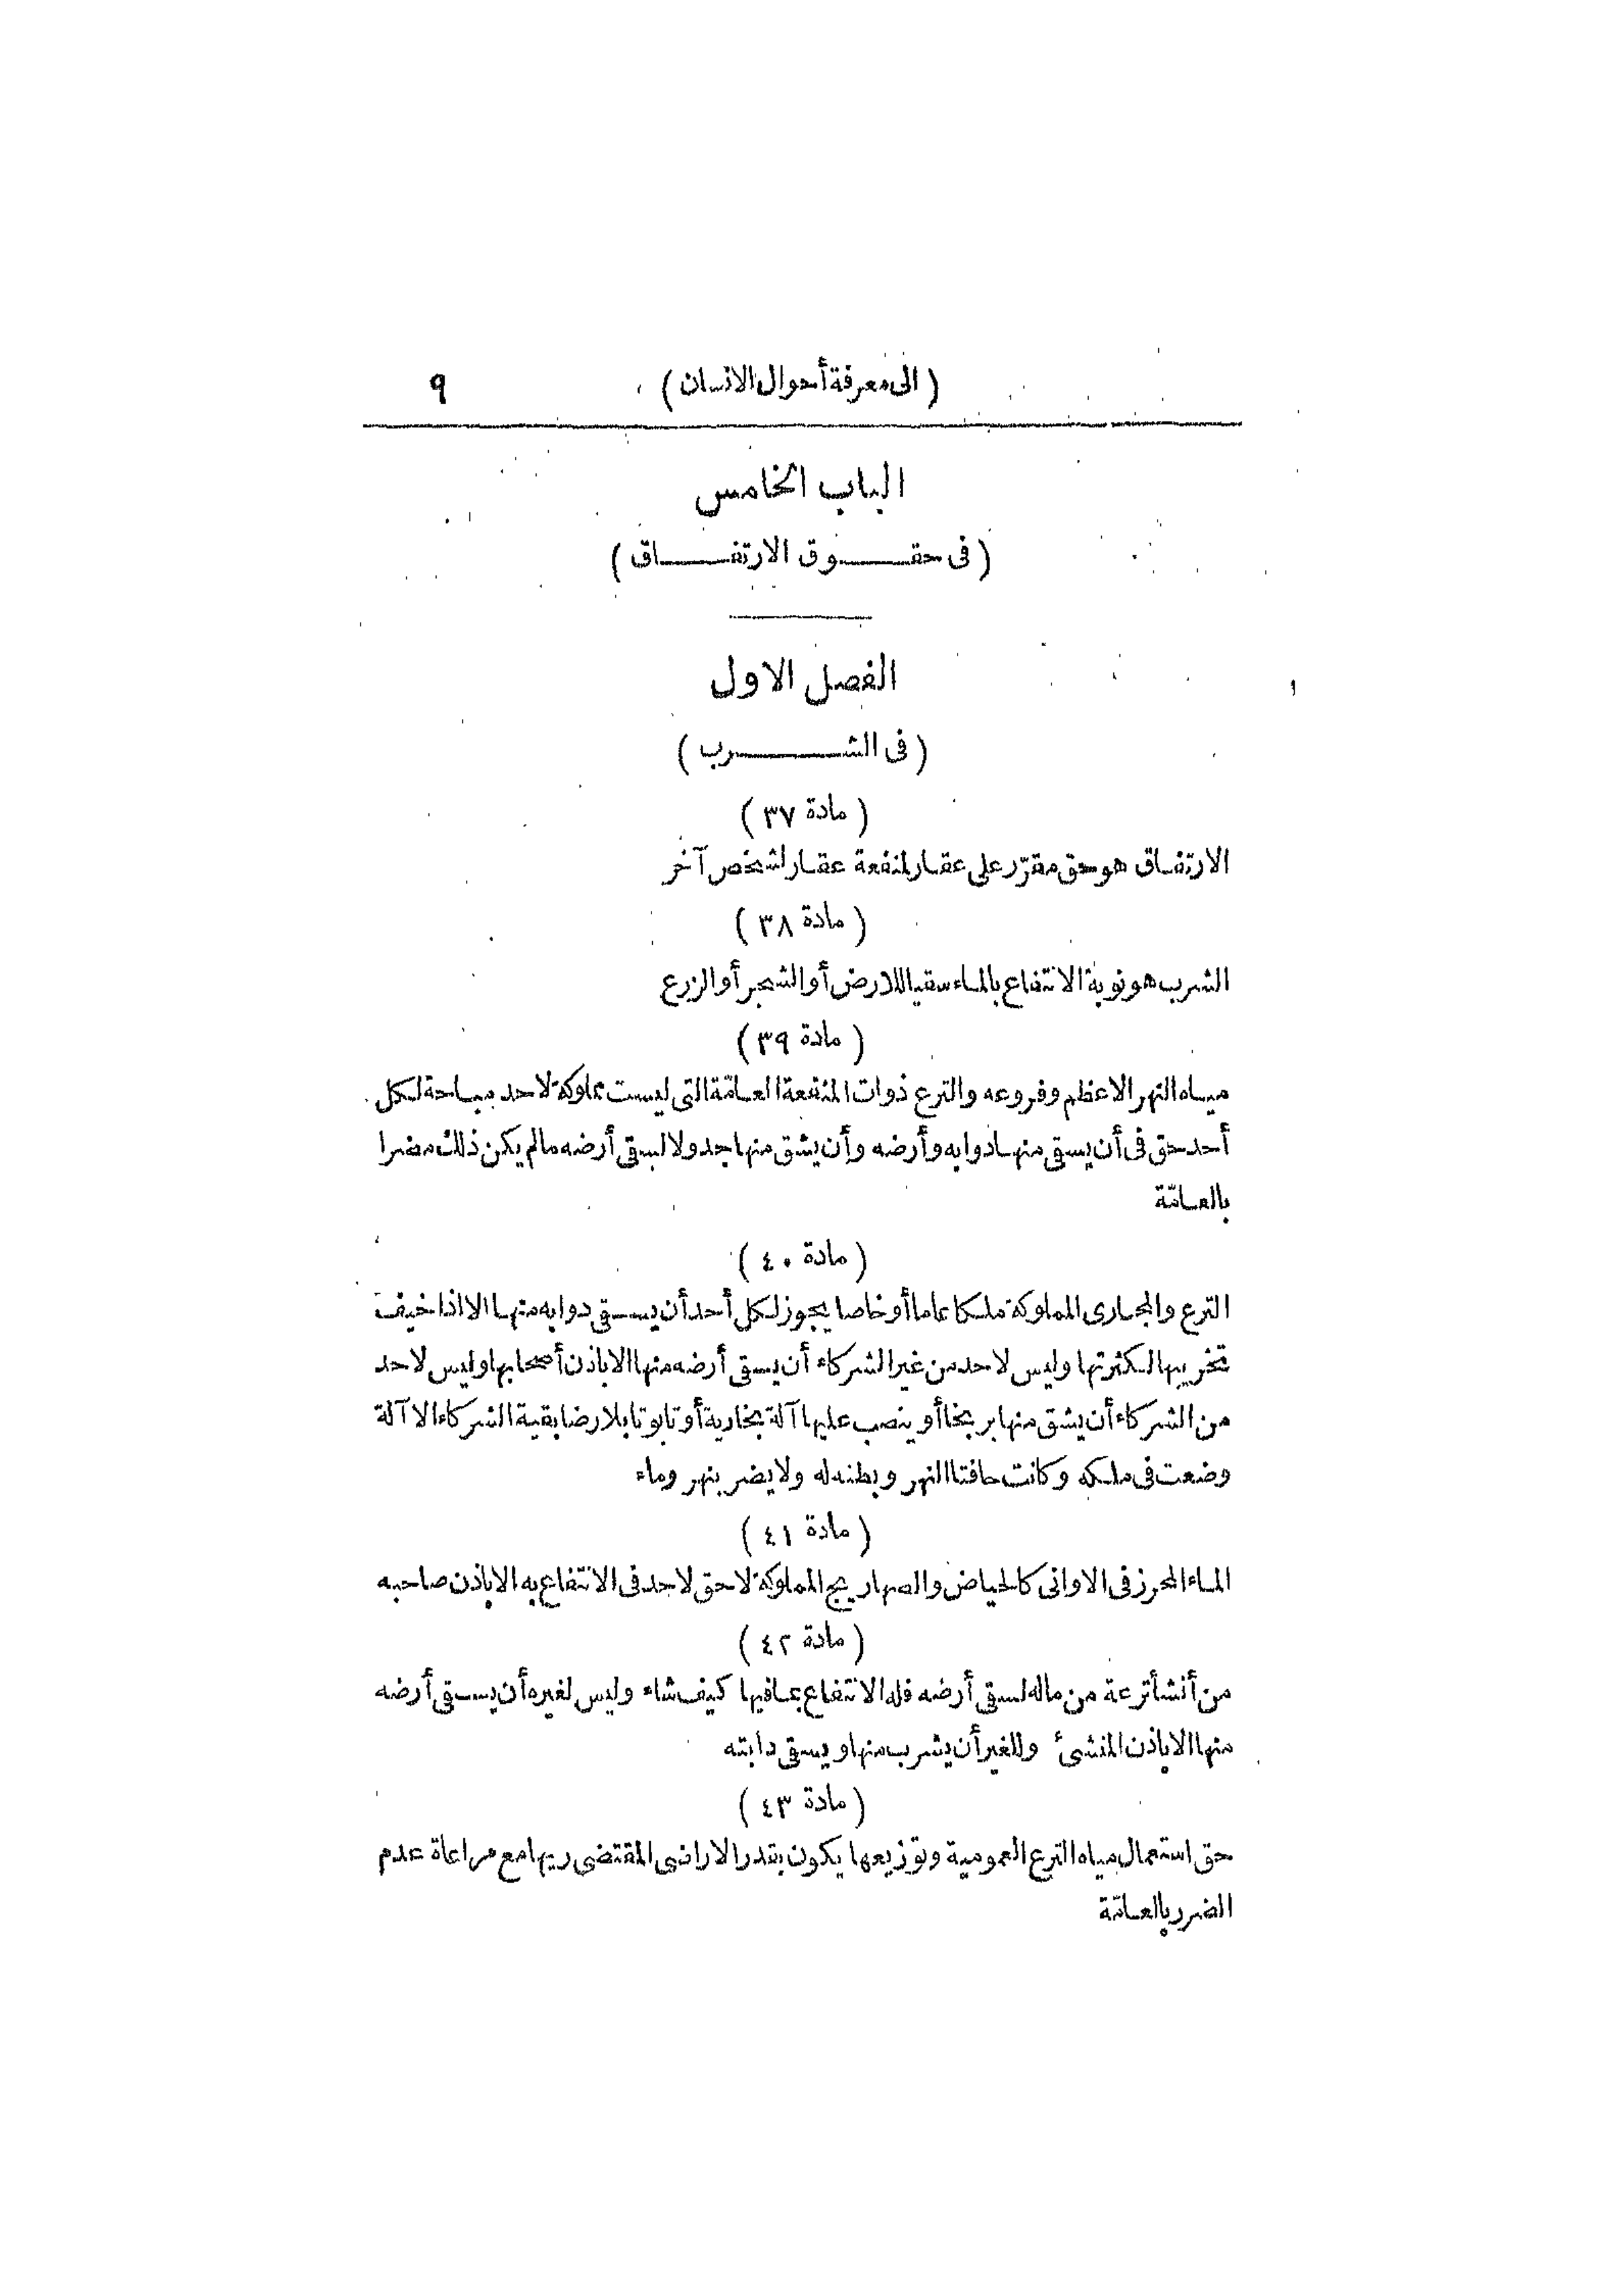 (الى معرفة أحوال الانسان) ٩
الباب الخامس
(فى حقــوق الارتفــاق)
الفصل الاول
(فى الشــرب)
(مادة ٣٧)
الارتفاق هو حق مقرّر على عقار لمنفعة عقار لشخص آخر
(مادة ٣٨)
الشرب هو نوبة الانتفاع بالماء سقيا للارض أو الشجر أو الزرع
(مادة ٣٩)
مياه النهر الاعظم وفروعه والترع ذوات المنفعة العامّة التى ليست مملوكة لاحد مباحة لكل
أحد حق فى أن يسقى منها دوابه وأرضه وأن يشق منها جدولا لسقى أرضه مالم يكن ذلك مضرا
بالعامّة
(مادة ٤٠)
الترع والمجارى المملوكة ملكا عاما أو خاصا يجوز لكل أحد أن يسقى دوابه منها الا اذا خيف
تخريبها لكثرتها وليس لاحد من غير الشركاء أن يسقى أرضه منها الا باذن أصحابها وليس لاحد
من الشركاء أن يشق منها بربخا أو ينصب عليها آلة بخارية أو تابوتا بلا رضا بقية الشركاء الا آلة
وضعت فى ملكه وكانت حافتا النهر وبطنه له ولا يضر بنهر وماء
(مادة ٤١)
الماء المحرز فى الاوانى كالحياض والصهاريج المملوكة لا حق لاحد فى الانتفاع به الا باذن صاحبه
(مادة ٤٢)
من أنشأ ترعة من ماله لسقى أرضه فله الانتفاع بما فيها كيف شاء وليس لغيره أن يسقى أرضه
منها الا باذن المنشئ وللغير أن يشرب منها ويسقى دابته
(مادة ٤٣)
حق استعمال مياه الترع العمومية وتوزيعها يكون بقدر الاراضى المقتضى ريها مع مراعاة عدم
الضرر بالعامّة